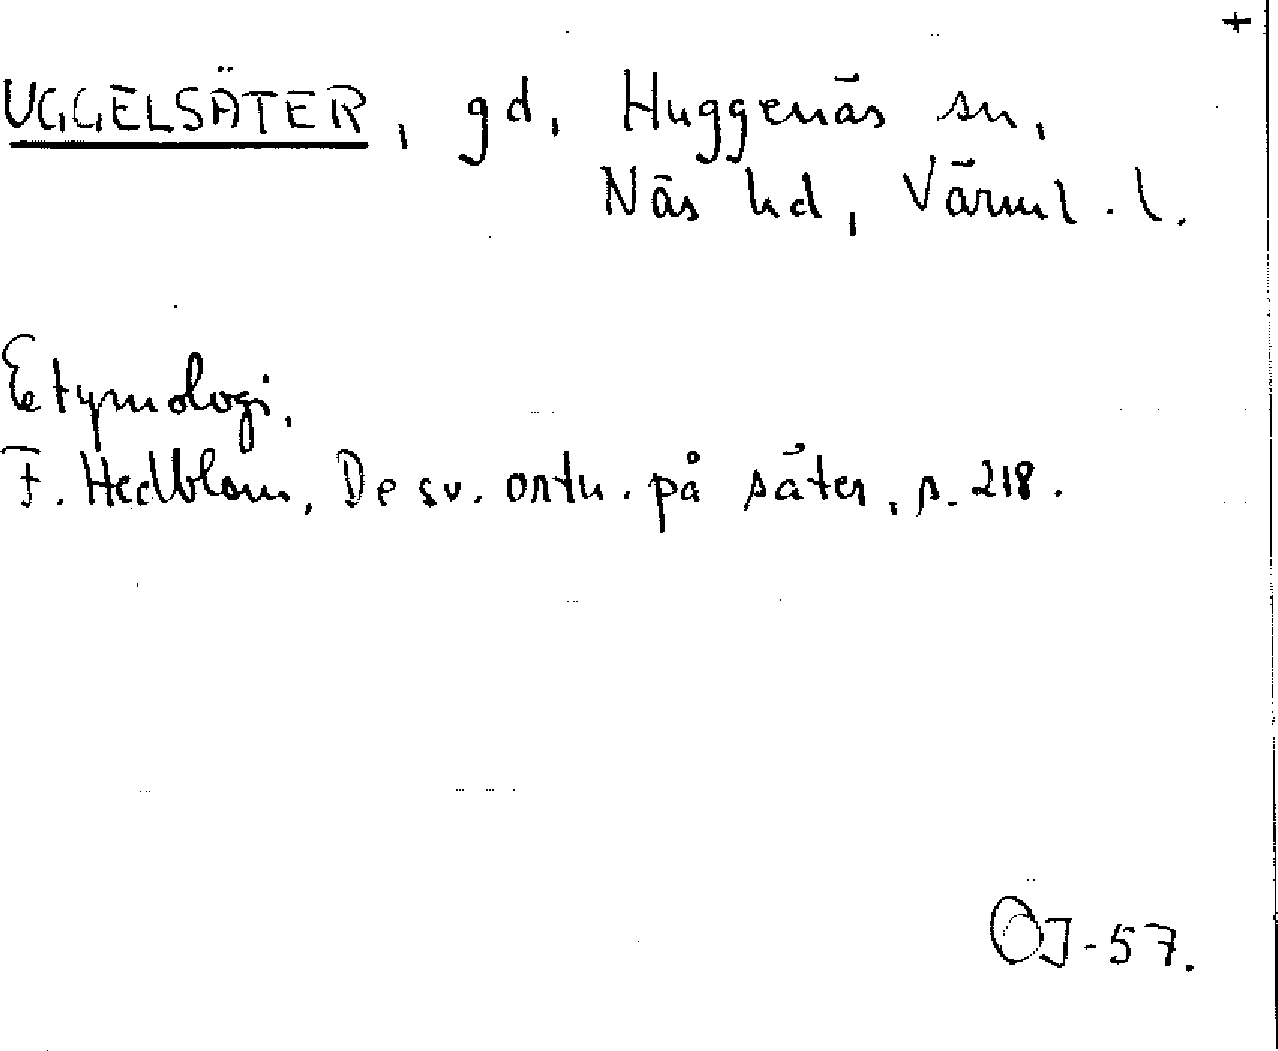 +
UGGELSÄTER, gd, Huggenäs sn,
Näs hd, Värml. l.
Etymologi.
F. Hedblom, De sv. ortn. på säter, s. 218.
OJ-57.